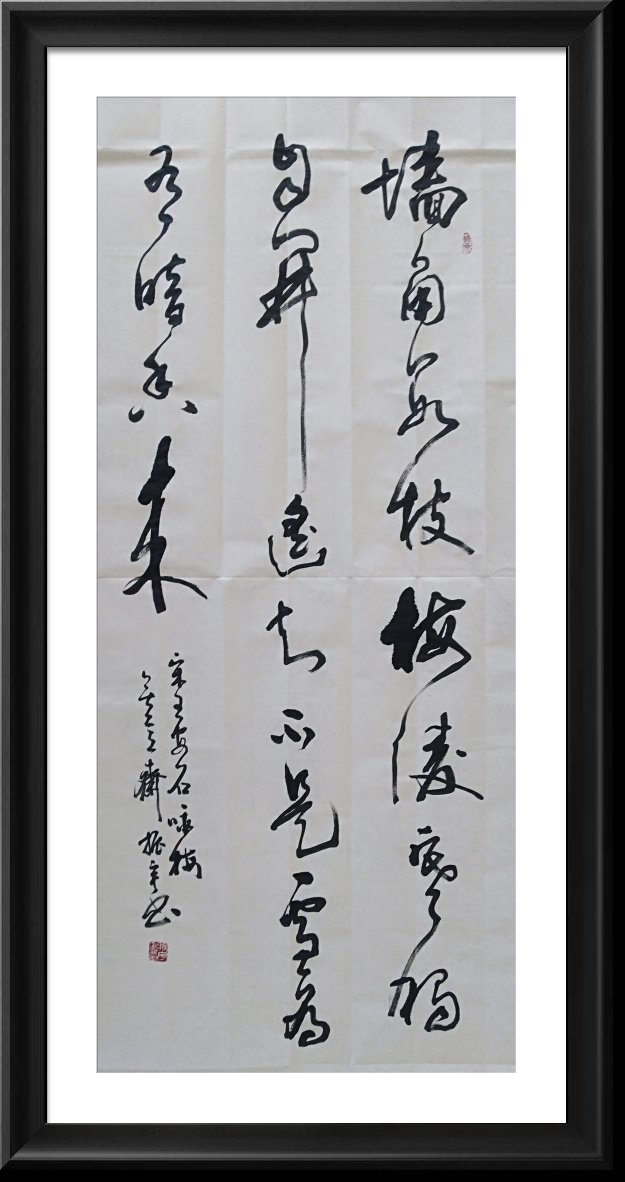 墙角数枝梅凌寒獨
自开遥知不是雪為
有暗香来
宋王安石咏梅
斋振宇书